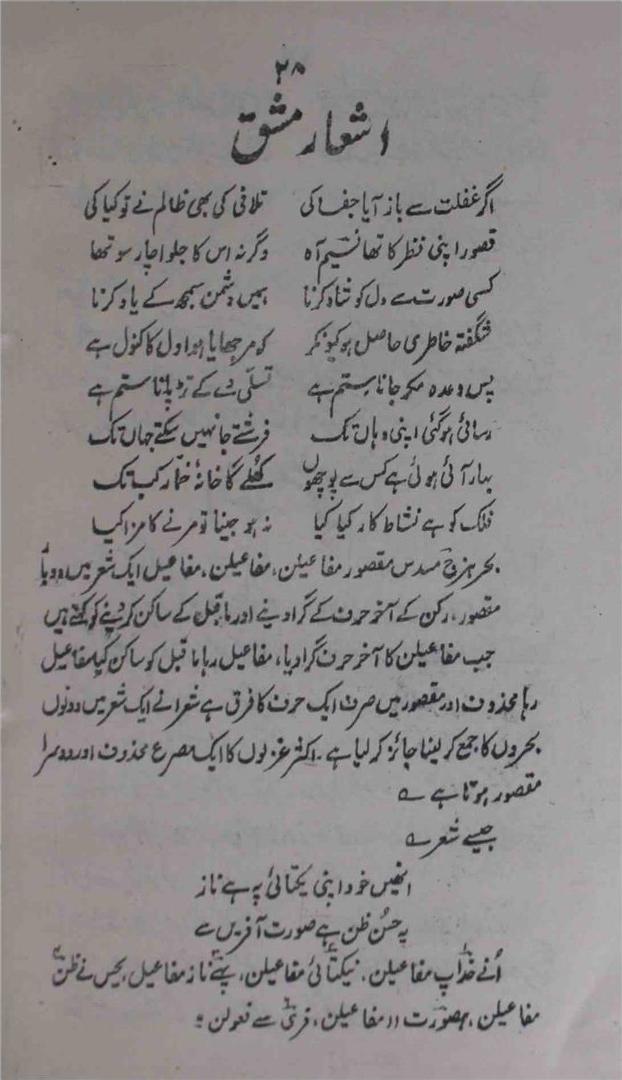 ۲۸
اشعار مشق
اگر غفلت سے باز آیا جفا کی تلافی کی بھی ظالم نے تو کیا کی
قصور اپنی نظر کا تھا نسیم آہ وگرنہ اس کا جلوا چار سو تھا
کسی صورت سے دل کو شاد کرنا ہمیں دشمن سمجھ کے یاد کرنا
شگفتہ خاطری حاصل ہو کیونکر کو مرجھایا ہوا دل کا کنول ہے
پس وعدہ مکر جانا ستم ہے تسلی دے کے تڑپانا ستم ہے
رسائی ہوگئی اپنی وہاں تک فرشتے جا نہیں سکتے جہاں تک
بہار آئی ہوئی ہے کس سے پوچھوں کھلے گا خانۂ خمار کب تک
فلک کو ہے نشاط کار کیا کیا نہ ہو جینا تو مرنے کا مزا کیا
بحر ہزج مسدس مقصور مفاعیلن، مفاعیلن، مفاعیل ایک شعر میں دو بار
مقصور، رکن کے آخر حرف کے گرا دینے اور ماقبل کے ساکن کر دینے کو کہتے ہیں
جب مفاعیلن کا آخر حرف گرا دیا، مفاعیل رہا ماقبل کو ساکن کیا مفاعیل
رہا محذوف اور مقصور میں صرف ایک حرف کا فرق ہے شعرا نے ایک شعر میں دونوں
بحروں کا جمع کر لینا جائز کر لیا ہے۔ اکثر غزلوں کا ایک مصرع محذوف اور دوسرا
مقصور ہوتا ہے ؎
جیسے شعر ؎
انھیں خود اپنی یکتائی پہ ہے ناز
یہ حسن ظن ہے صورت آفریں سے
اُنے خداپ مفاعیلن، نیکتائی مفاعیلن، پہے ناز مفاعیل، یحس نے ظن
مفاعیلن، ہصورت اا مفاعیلن، فری سے فعولن ؛